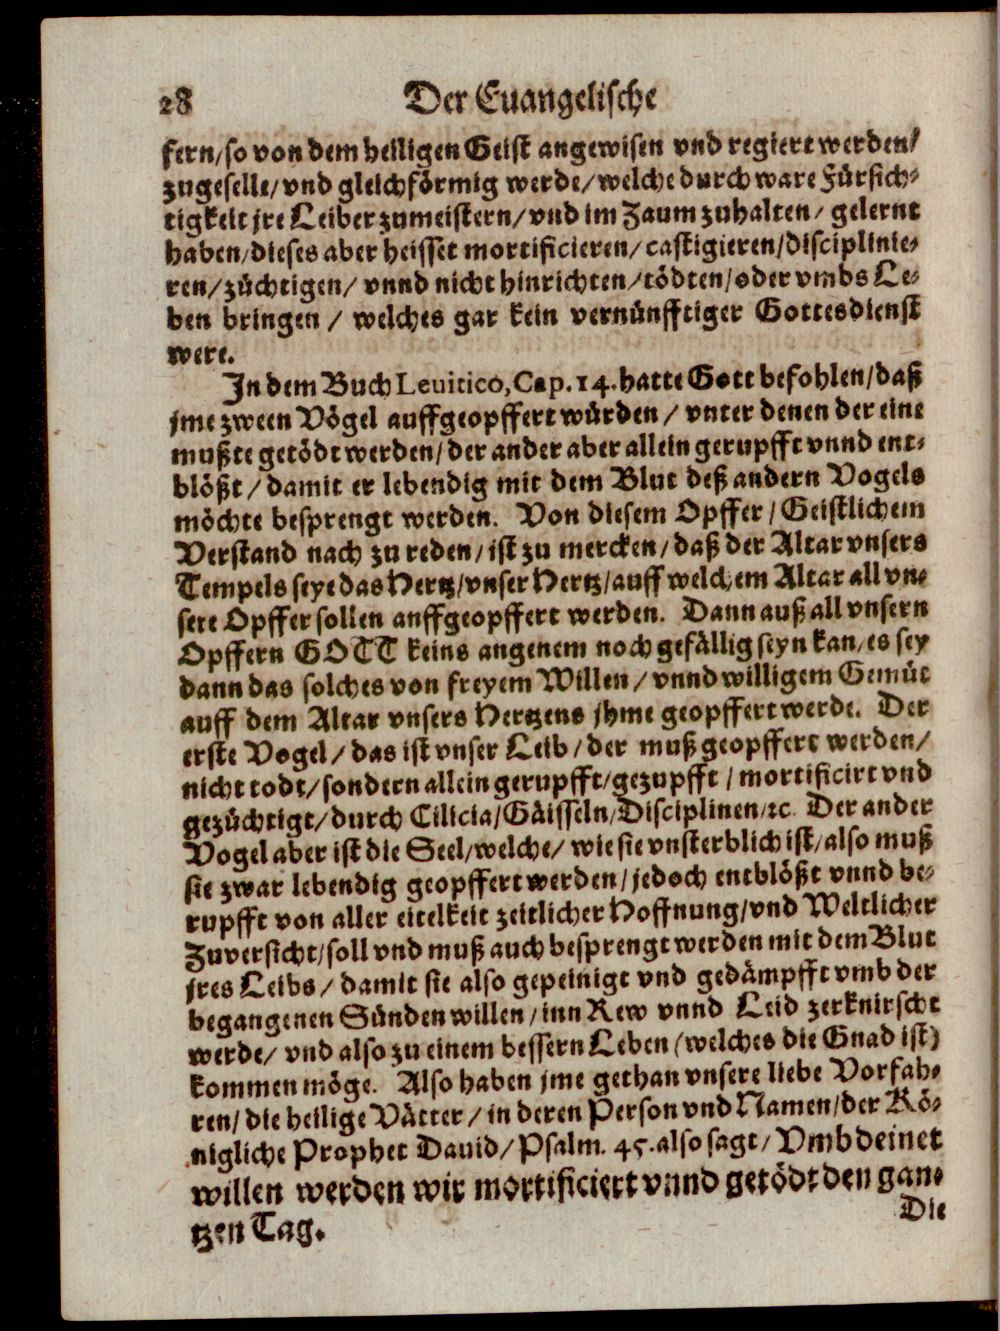 28 Der Euangelische
fern/so von dem heiligen Geist angewisen vnd regiert werden/
zugeselle/vnd gleichförmig werde/welche durch ware Fürsich-
tigkeit jre Leiber zumeistern/vnd im Zaum zuhalten/gelernt
haben/dieses aber heisset mortificieren/castigieren/disciplinie-
ren/züchtigen/vnnd nicht hinrichten/tödten/oder vmbs Le-
ben bringen/welches gar kein vernünfftiger Gottesdienst
were.
In dem Buch Leuitico, Cap. 14. hatte Gott befohlen/daß
jme zween Vögel auffgeopffert würden/vnter denen der eine
mußte getödt werden/der ander aber allein gerupfft vnnd ent-
blößt/damit er lebendig mit dem Blut deß andern Vogels
möchte besprengt werden. Von diesem Opffer/Geistlichem
Verstand nach zu reden/ist zu mercken/daß der Altar vnsers
Tempels seye das Hertz/vnser Hertz/auff welchem Altar all vn-
sere Opffer sollen auffgeopffert werden. Dann auß all vnsern
Opffern GOTT keins angenem noch gefällig seyn kan/es sey
dann das solches von freyem Willen/vnnd willigem Gemüt
auff dem Altar vnsers Hertzens jhme geopffert werde. Der
erste Vogel/das ist vnser Leib/der muß geopffert werden/
nicht todt/sondern allein gerupfft/gezupfft/mortificirt vnd
gezüchtigt/durch Cilicia/Gäisseln/Disciplinen/ꝛc. Der ander
Vogel aber ist die Seel/welche/wie sie vnsterblich ist/also muß
sie zwar lebendig geopffert werden/jedoch entblößt vnnd be-
rupfft von aller eitelkeit zeitlicher Hoffnung/vnd Weltlicher
Zuversicht/soll vnd muß auch besprengt werden mit dem Blut
jres Leibs/damit sie also gepeinigt vnd gedämpfft vmb der
begangenen Sünden willen/inn Rew vnnd Leid zerknirscht
werde/vnd also zu einem bessern Leben (welches die Gnad ist)
kommen möge. Also haben jme gethan vnsere liebe Vorfah-
ren/die heilige Vätter/in deren Person vnd Namen/der Kö-
nigliche Prophet Dauid/Psalm. 45. also sagt/Vmb deinet
willen werden wir mortificiert vnnd getödt den gan-
tzen Tag.
Die